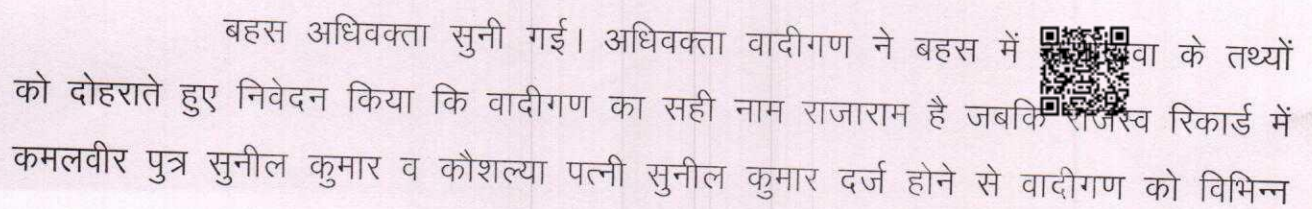 बहस अधिवक्ता सुनी गई। अधिवक्ता वादीगण ने बहस में वा के तथ्यों
को दोहराते हुए निवेदन किया कि वादीगण का सही नाम राजाराम है जबकि राजस्व रिकार्ड में
कमलवीर पुत्र सुनील कुमार व कौशल्या पत्नी सुनील कुमार दर्ज होने से वादीगण को विभिन्न